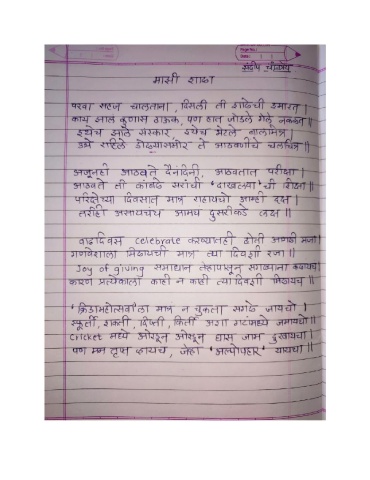 संदीप चौकेकर
माझी शाळा
परवा सहज चालताना, दिसली ती शाळेची इमारत |
काय झाल कुणास ठाऊक, पण हात जोडले गेले नकळत ||
इथेच झाले संस्कार, इथेच भेटले बालमित्र |
उभे राहिले डोळ्यासमोर ते आठवणींचे चलचित्र ||
अजूनही आठवते दैनंदिनी, आठवतात परीक्षा |
आठवते ती कांबळे सरांची 'दाखल्या' ची शिक्षा ||
परिक्षेच्या दिवसात मात्र राहायचो आम्ही दक्ष |
तरीही असायचंच आमचं दुसरीकडे लक्ष ||
वाढदिवस celebrate करण्यातही होती आगळी मजा |
गणवेशाला मिळायची मात्र त्या दिवशी रजा ||
Joy of giving समाधान तेव्हापासून सगळ्यांना कळायचं
कारण प्रत्येकाला काही न काही त्यादिवशी मिळायचं ||
'क्रिडामहोत्सवा'ला मात्र न चुकता सगळे जायचो |
स्फूर्ती, शक्ती, दिप्ती, किर्ती अशा गटांमध्ये जमायचो ||
Cricket मध्ये ओरडून ओरडून घसा जाम दुखायचा |
पण मन तृप्त व्हायचं, जेव्हा 'अल्पोपहार' यायचा ||